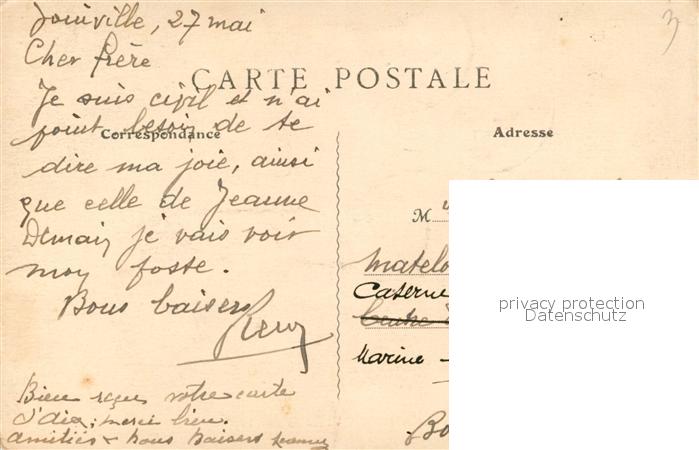 Joinville, 27 mai
Cher frère
CARTE POSTALE
Je suis civil et n'ai
point besoin de te
Correspondance
Adresse
dire ma joie, ainsi
que celle de Jeanne
Demain je vais voir
mon poste.
Bons baisers
M
Matelo
Caserne
Centre
Marine -
privacy protection
Datenschutz
Bien reçu votre carte
d'Aix, merci bien.
amitiés & bons baisers Jeanne
Bo